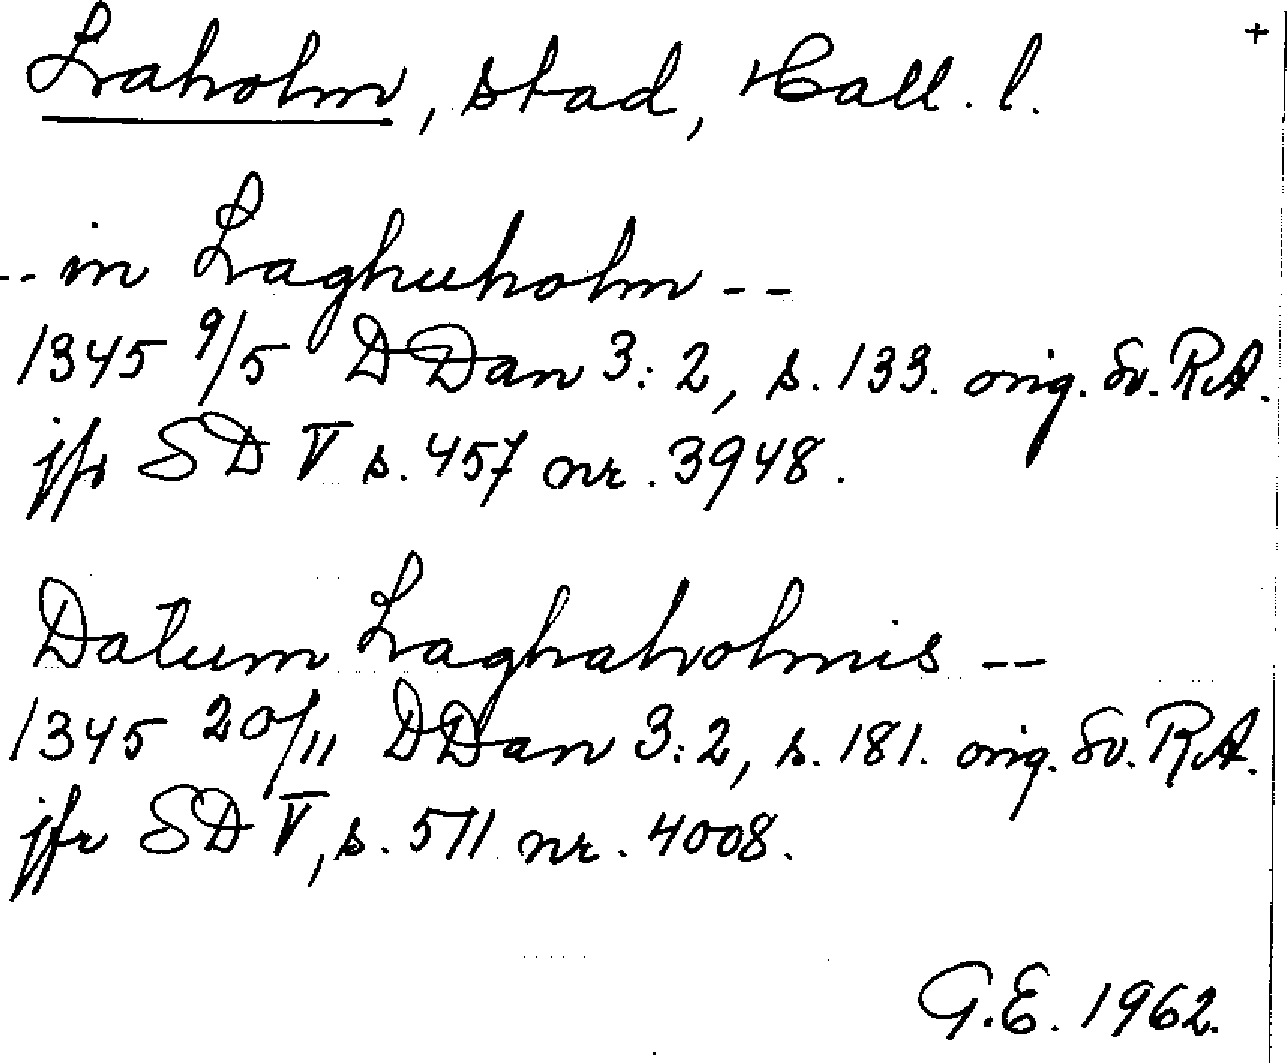 Laholm, stad, Hall. l. +
-- in Laghuholm --
1345 9/5 DDan 3:2, s. 133. orig. Sv. RA.
jfr SD V s. 457 nr. 3948.
Datum Laghaholmis --
1345 20/11 DDan 3:2, s. 181. orig. Sv. RA.
jfr SD V, s. 511 nr. 4008.
G.E. 1962.